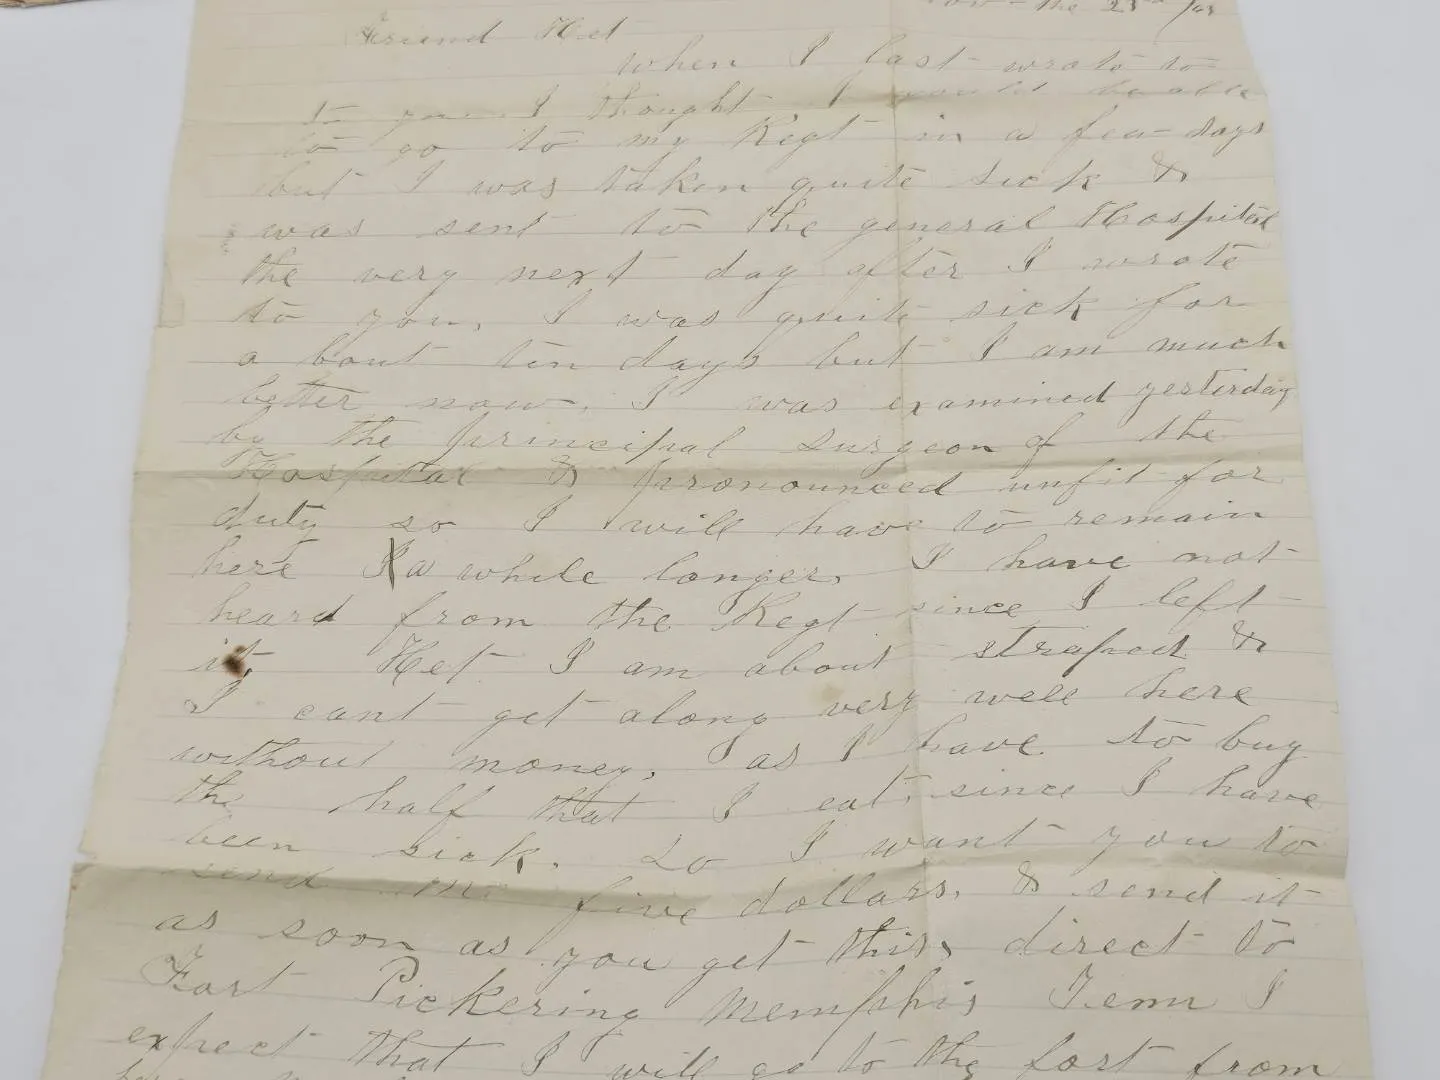 the 23rd
Friend Het
when I last wrote to
to you I thought I would be able
to go to my Regt in a few days
but I was taken quite sick &
was sent to the general Hospital
the very next day after I wrote
to you, I was quite sick for
a bout ten days but I am much
better now. I was examined yesterday
by the principal surgeon of the
Hospital & pronounced unfit for
duty so I will have to remain
here a while longer, I have not
heard from the Regt since I left
it, Het I am about straped &
I cant get along very well here
without money, as I have to buy
the half that I eat, since I have
been sick. So I want you to
send me five dollars, & send it
as soon as you get this, direct to
Fort Pickering Memphis Tenn I
expect that I will go to the fort from